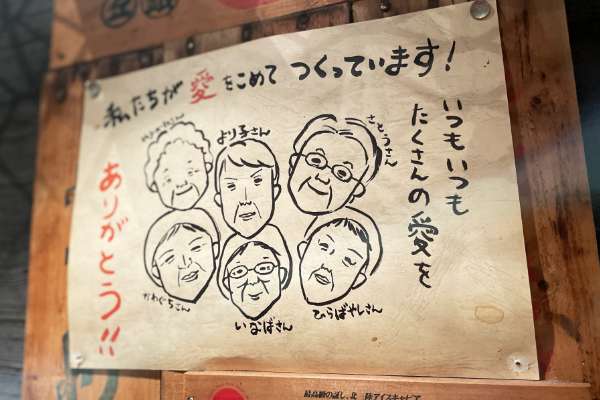 私たちが愛をこめて つくっています!
いつもいつも
たくさんの愛を
ありがとう!!
より子さん
さとうさん
かわぐちさん
いなばさん
ひらばやしさん